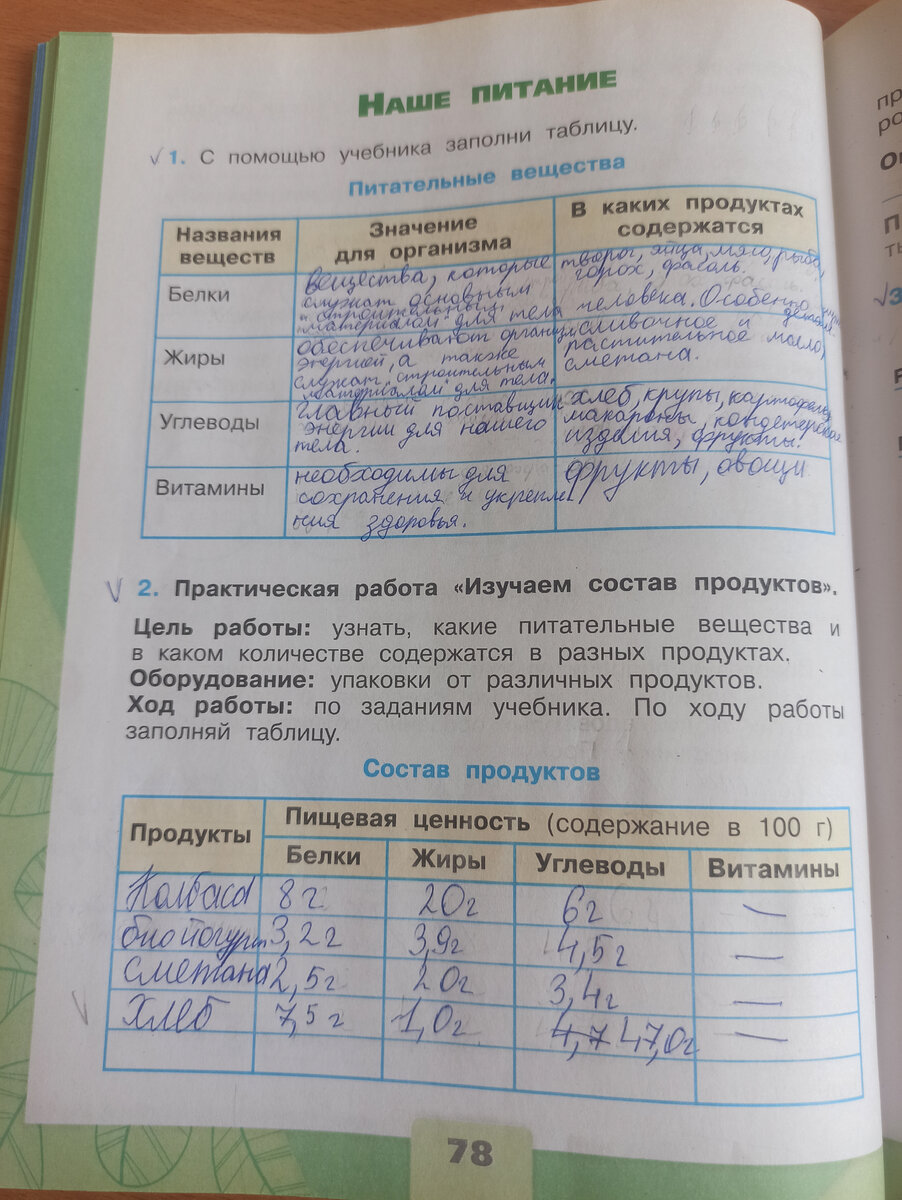 НАШЕ ПИТАНИЕ
√ 1. С помощью учебника заполни таблицу.
Питательные вещества
Названия веществ
Значение для организма
В каких продуктах содержатся
Белки
вещества, которые
служат основным
и строительным
материалом для тела человека. Особенно
творог, яйца, мясо, рыба,
горох, фасоль.
Жиры
обеспечивают организм
энергией, а также
служат строительным
материалом для тела.
сливочное и
растительное масло,
сметана.
Углеводы
главный поставщик
энергии для нашего
тела.
хлеб, крупы, картофель,
макароны, кондетерские
изделия, фрукты.
Витамины
необходимы для
сохранения и укрепле
ния здоровья.
фрукты, овощи
√ 2. Практическая работа «Изучаем состав продуктов».
Цель работы: узнать, какие питательные вещества и
в каком количестве содержатся в разных продуктах.
Оборудование: упаковки от различных продуктов.
Ход работы: по заданиям учебника. По ходу работы
заполняй таблицу.
Состав продуктов
Продукты
Пищевая ценность (содержание в 100 г)
Белки Жиры Углеводы Витамины
Колбаса 8 г 20 г 6 г —
биойогурт 3,2 г 3,9 г 4,5 г —
сметана 2,5 г 20 г 3,4 г —
√ Хлеб 7,5 г 1,0 г 4,7 47,0 г —
78